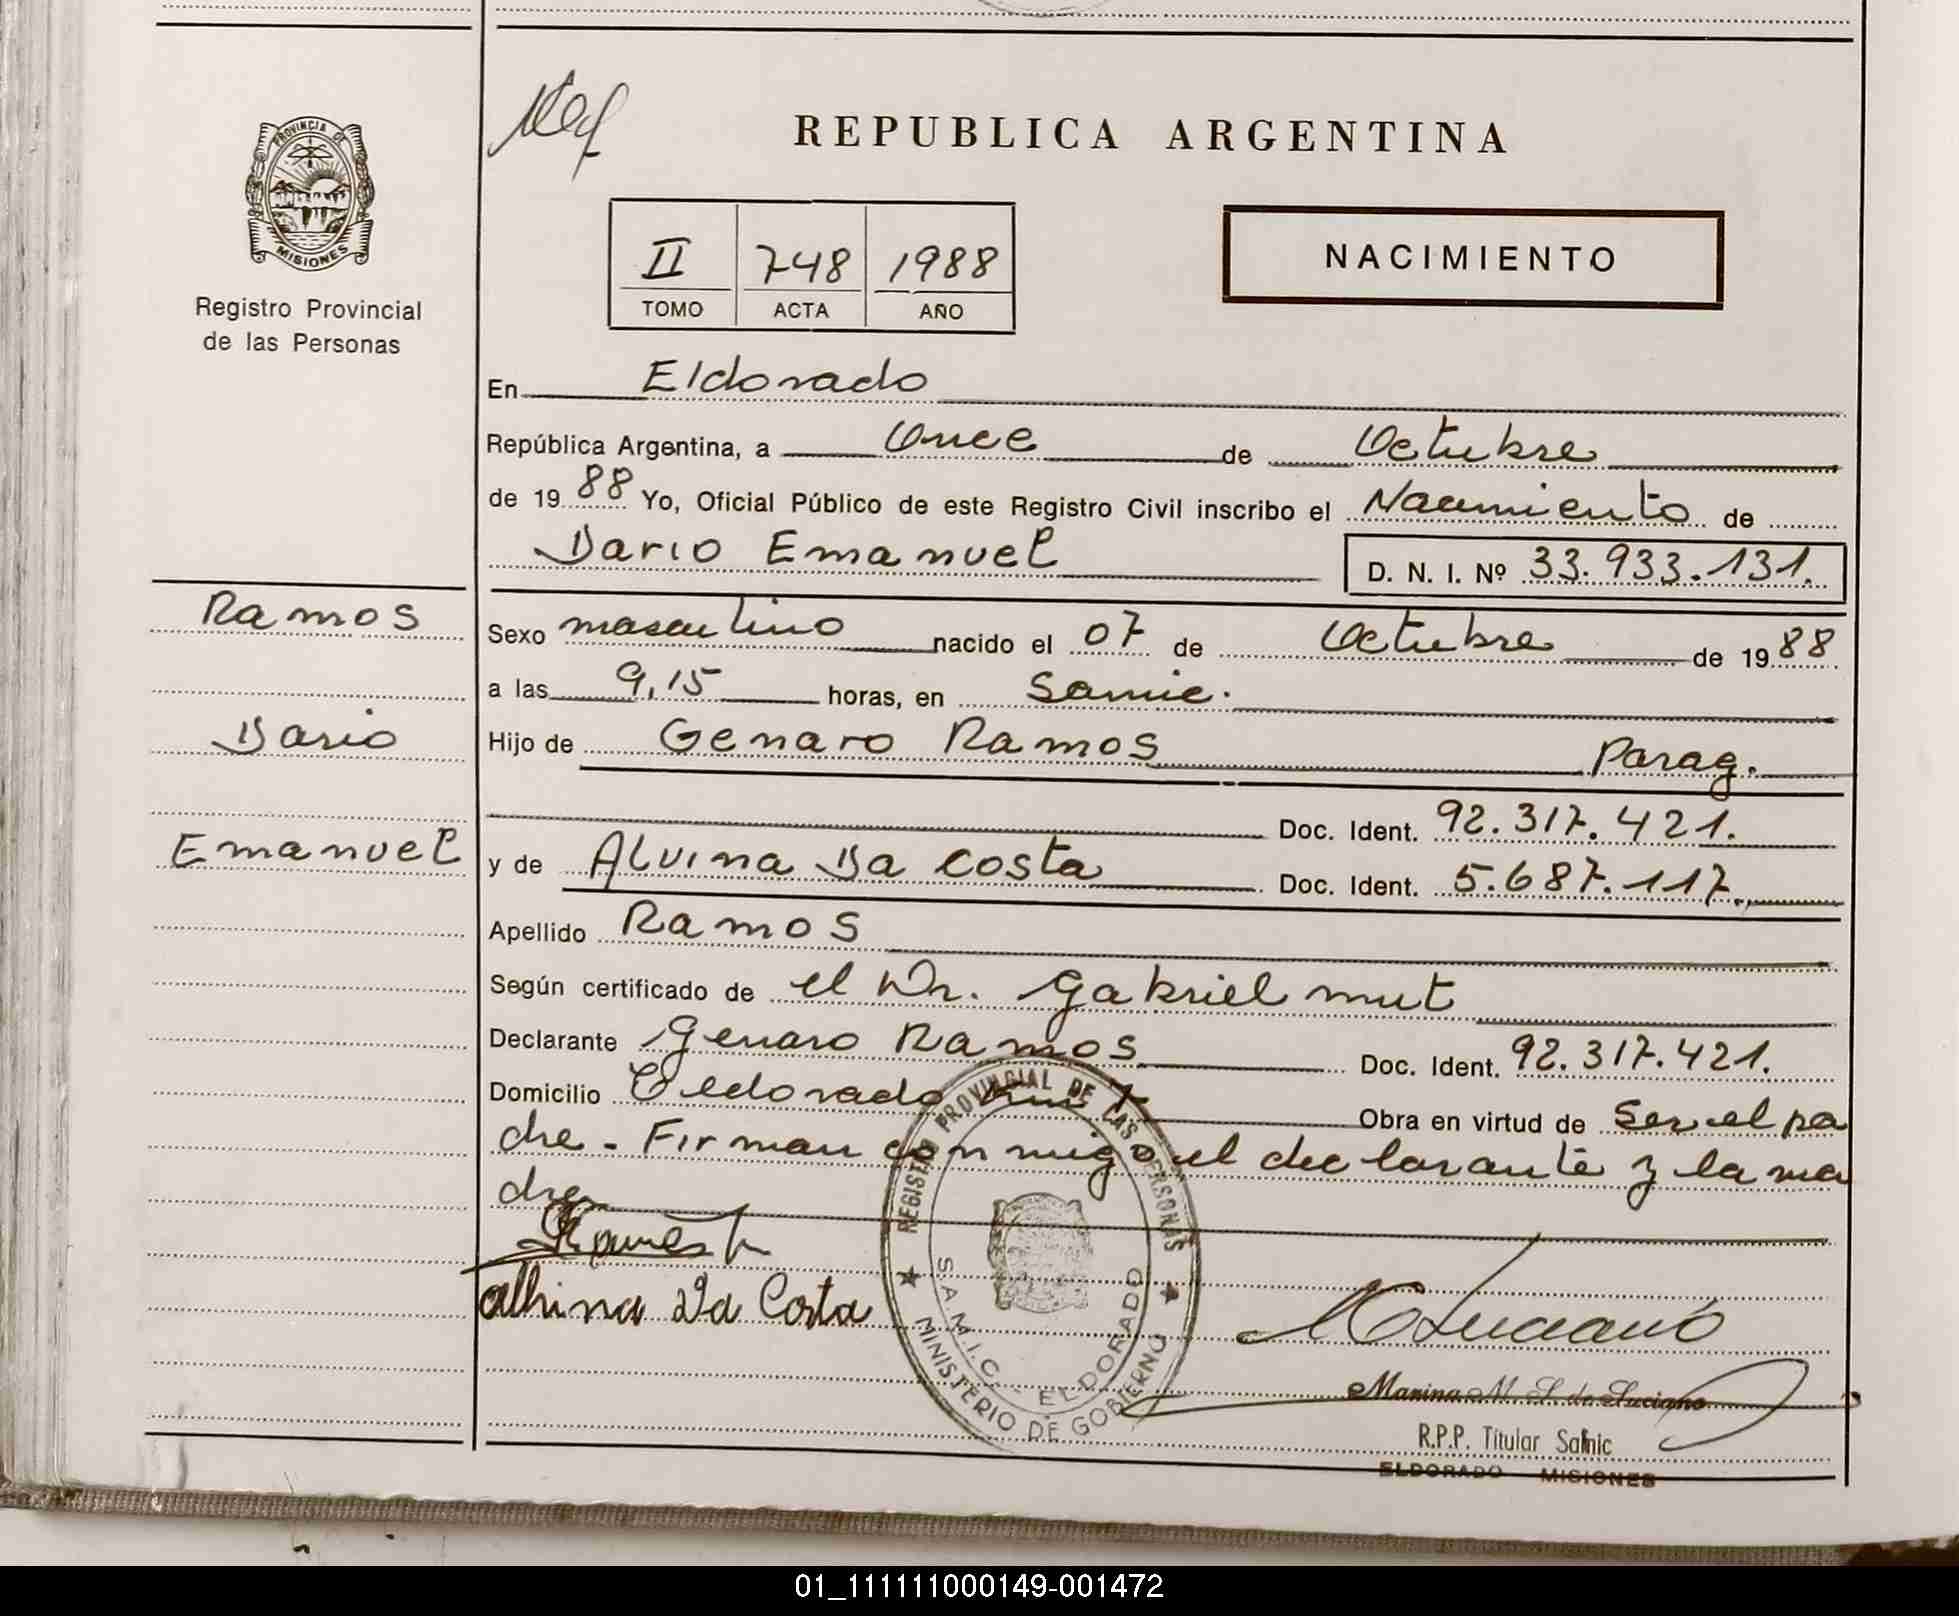 REPUBLICA ARGENTINA
PROVINCIA DE
MISIONES
Registro Provincial
de las Personas
II 748 1988
TOMO ACTA AÑO
NACIMIENTO
En Eldorado
República Argentina, a Once de Octubre
de 19 88 Yo, Oficial Público de este Registro Civil inscribo el Nacimiento de
Dario Emanuel D. N. I. Nº 33.933.131.
Ramos
Dario
Emanuel
Sexo masculino nacido el 07 de Octubre de 19 88
a las 9,15 horas, en Samic.
Hijo de Genaro Ramos Parag.
Doc. Ident. 92.317.421.
y de Alvina Da Costa Doc. Ident. 5.687.117.
Apellido Ramos
Según certificado de el Dr. Gabriel mut
Declarante Genaro Ramos Doc. Ident. 92.317.421.
Domicilio Eldorado Km 7 Obra en virtud de Ser el pa
dre - Firman conmigo el declarante y la ma
dre
Albina Da Costa
REGISTRO PROVINCIAL DE LAS PERSONAS
S.A.M.I.C. - ELDORADO
MINISTERIO DE GOBIERNO
Marina M. S. de Luciano
R.P.P. Titular Samic
ELDORADO MISIONES
01_111111000149-001472